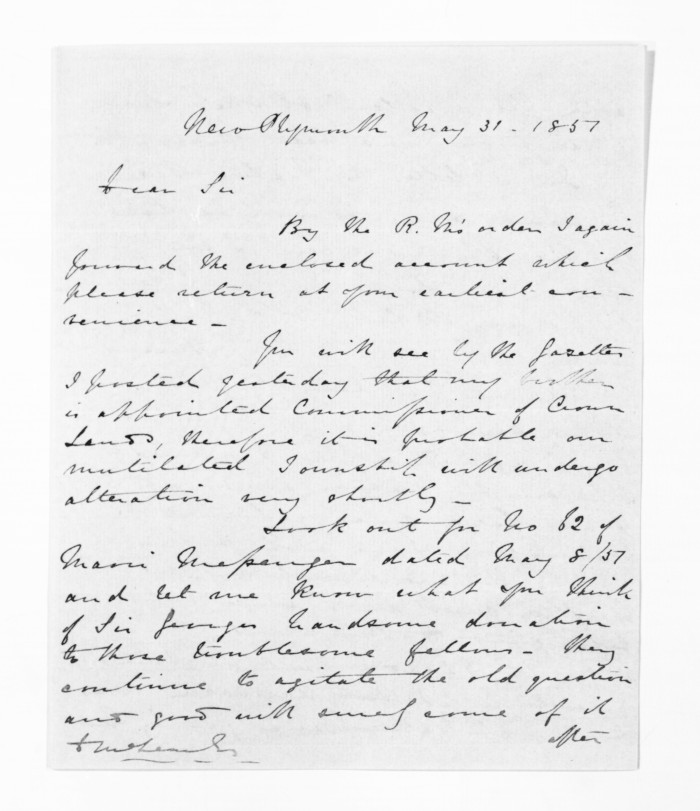 New Plymouth May 31 - 1851
Dear Sir
By the R. M's order I again
forward the enclosed account which
please return at your earliest con -
venience -
You will see by the Gazettes
I posted yesterday that my brother
is appointed Commissioner of Crown
Lands, therefore it is probable our
mutilated Township will undergo
alteration very shortly -
Look out for No 62 of
Maori Messenger dated May 8/51
and let me know what you think
of Sir Georges handsome donation
to those troublesome fellows - they
continue to agitate the old question
and good will surely come of it
D McLean Esq
after